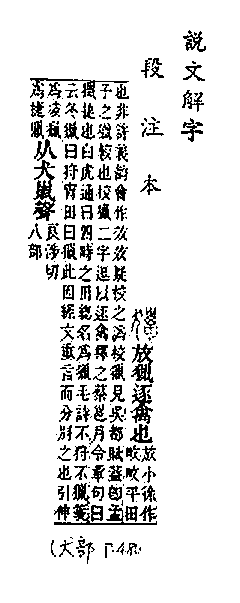 説文解字
段注本
放獵逐禽也
放小徐作
畋畋平田
也非許意韵會作效效疑校之譌校獵見吳都賦葢卽孟
子之獵較也校獵二字逗以逐禽釋之蔡邕月令章句曰
獵捷也白虎通曰四時之田緫名爲獵毛詩不狩不獵箋
云冬獵曰狩宵田曰獵此因經文重言而分別之也引伸
爲凌獵
爲捷獵
从犬巤聲
良涉切
八部
(犬部